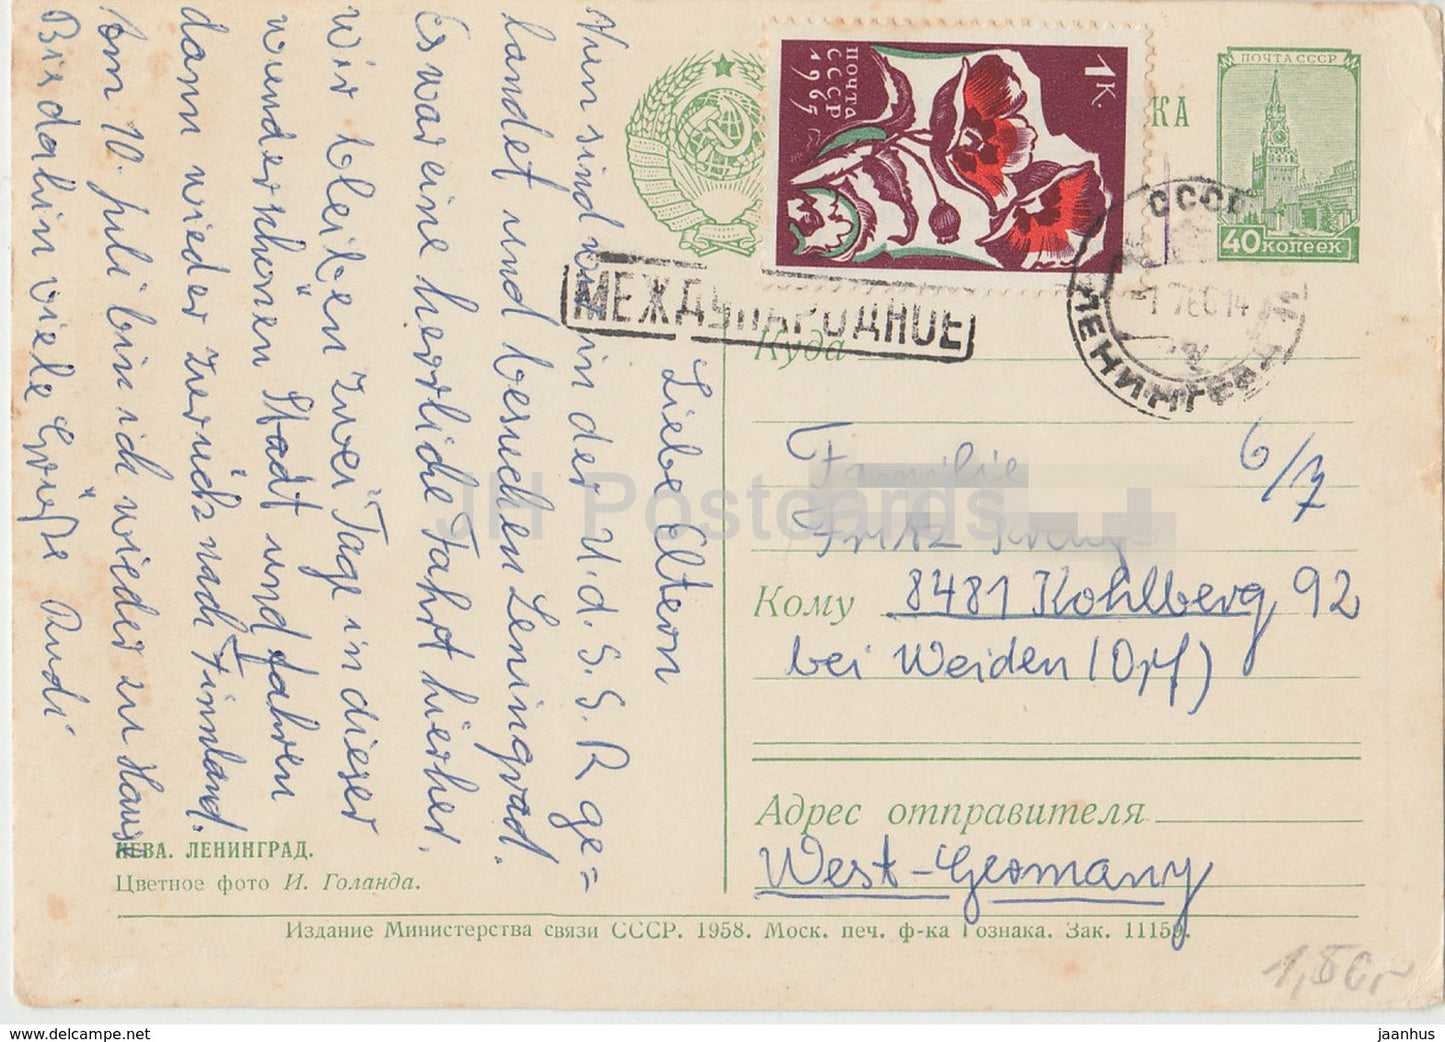 Liebe Eltern
Nun sind wir in der U.d.S.S.R ge=
landet und besuchen Leningrad.
Es war eine herrliche Fahrt hierher.
Wir bleiben zwei Tage in dieser
wunderschönen Stadt und fahren
dann wieder zurück nach Finnland.
Am 10. Juli bin ich wieder zu Hause
Bis dahin viele Grüße Rudi
НЕВА. ЛЕНИНГРАД.
Цветное фото И. Голанда.
ПОЧТА
СССР
1965
1 К.
КА
ПОЧТА СССР
40 копеек
МЕЖДУНАРОДНОЕ
СССР
ЛЕНИНГРАД
Куда
6/7
Familie
Fritz
Кому 8481 Kohlberg 92
bei Weiden (Opf)
Адрес отправителя
West-Germany
Издание Министерства связи СССР. 1958. Моск. печ. ф-ка Гознака. Зак. 11159.
1,50
JH Postcards
https://www.delcampe.net
jaanhus